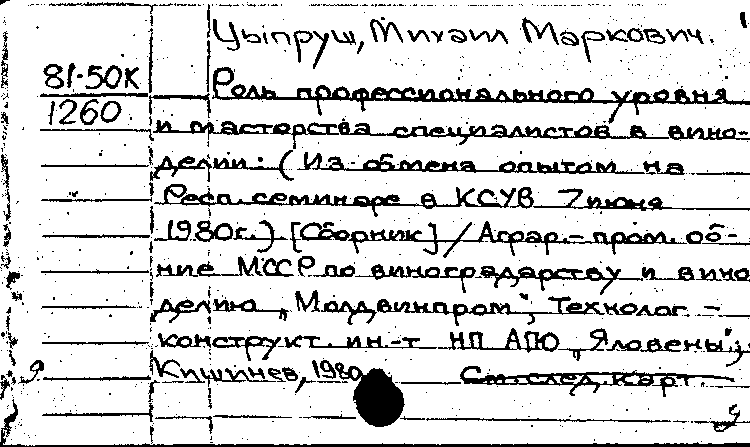 Цыпруш, Михаил Маркович.
81-50К
1260
Роль профессионального уровня
и мастерства специалистов в вино-
делии: (Из обмена опытом на
Респ. семинаре в КСУВ 7 июня
1980г.) [Сборник] / Аграр.-пром. об-
ние МССР по виноградарству и вино
делию „Молдвинпром", Технолог -
конструкт. ин.-т НП АПО „Яловены";
Кишинев, 1980 См. след. карт.